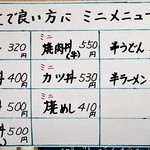 で良い方に ミニメニュー
320円
400円
500円
500円
ミニ
焼肉丼(牛) 550円
ミニ
カツ丼 530円
ミニ
焼めし 410円
半うどん
半ラーメン